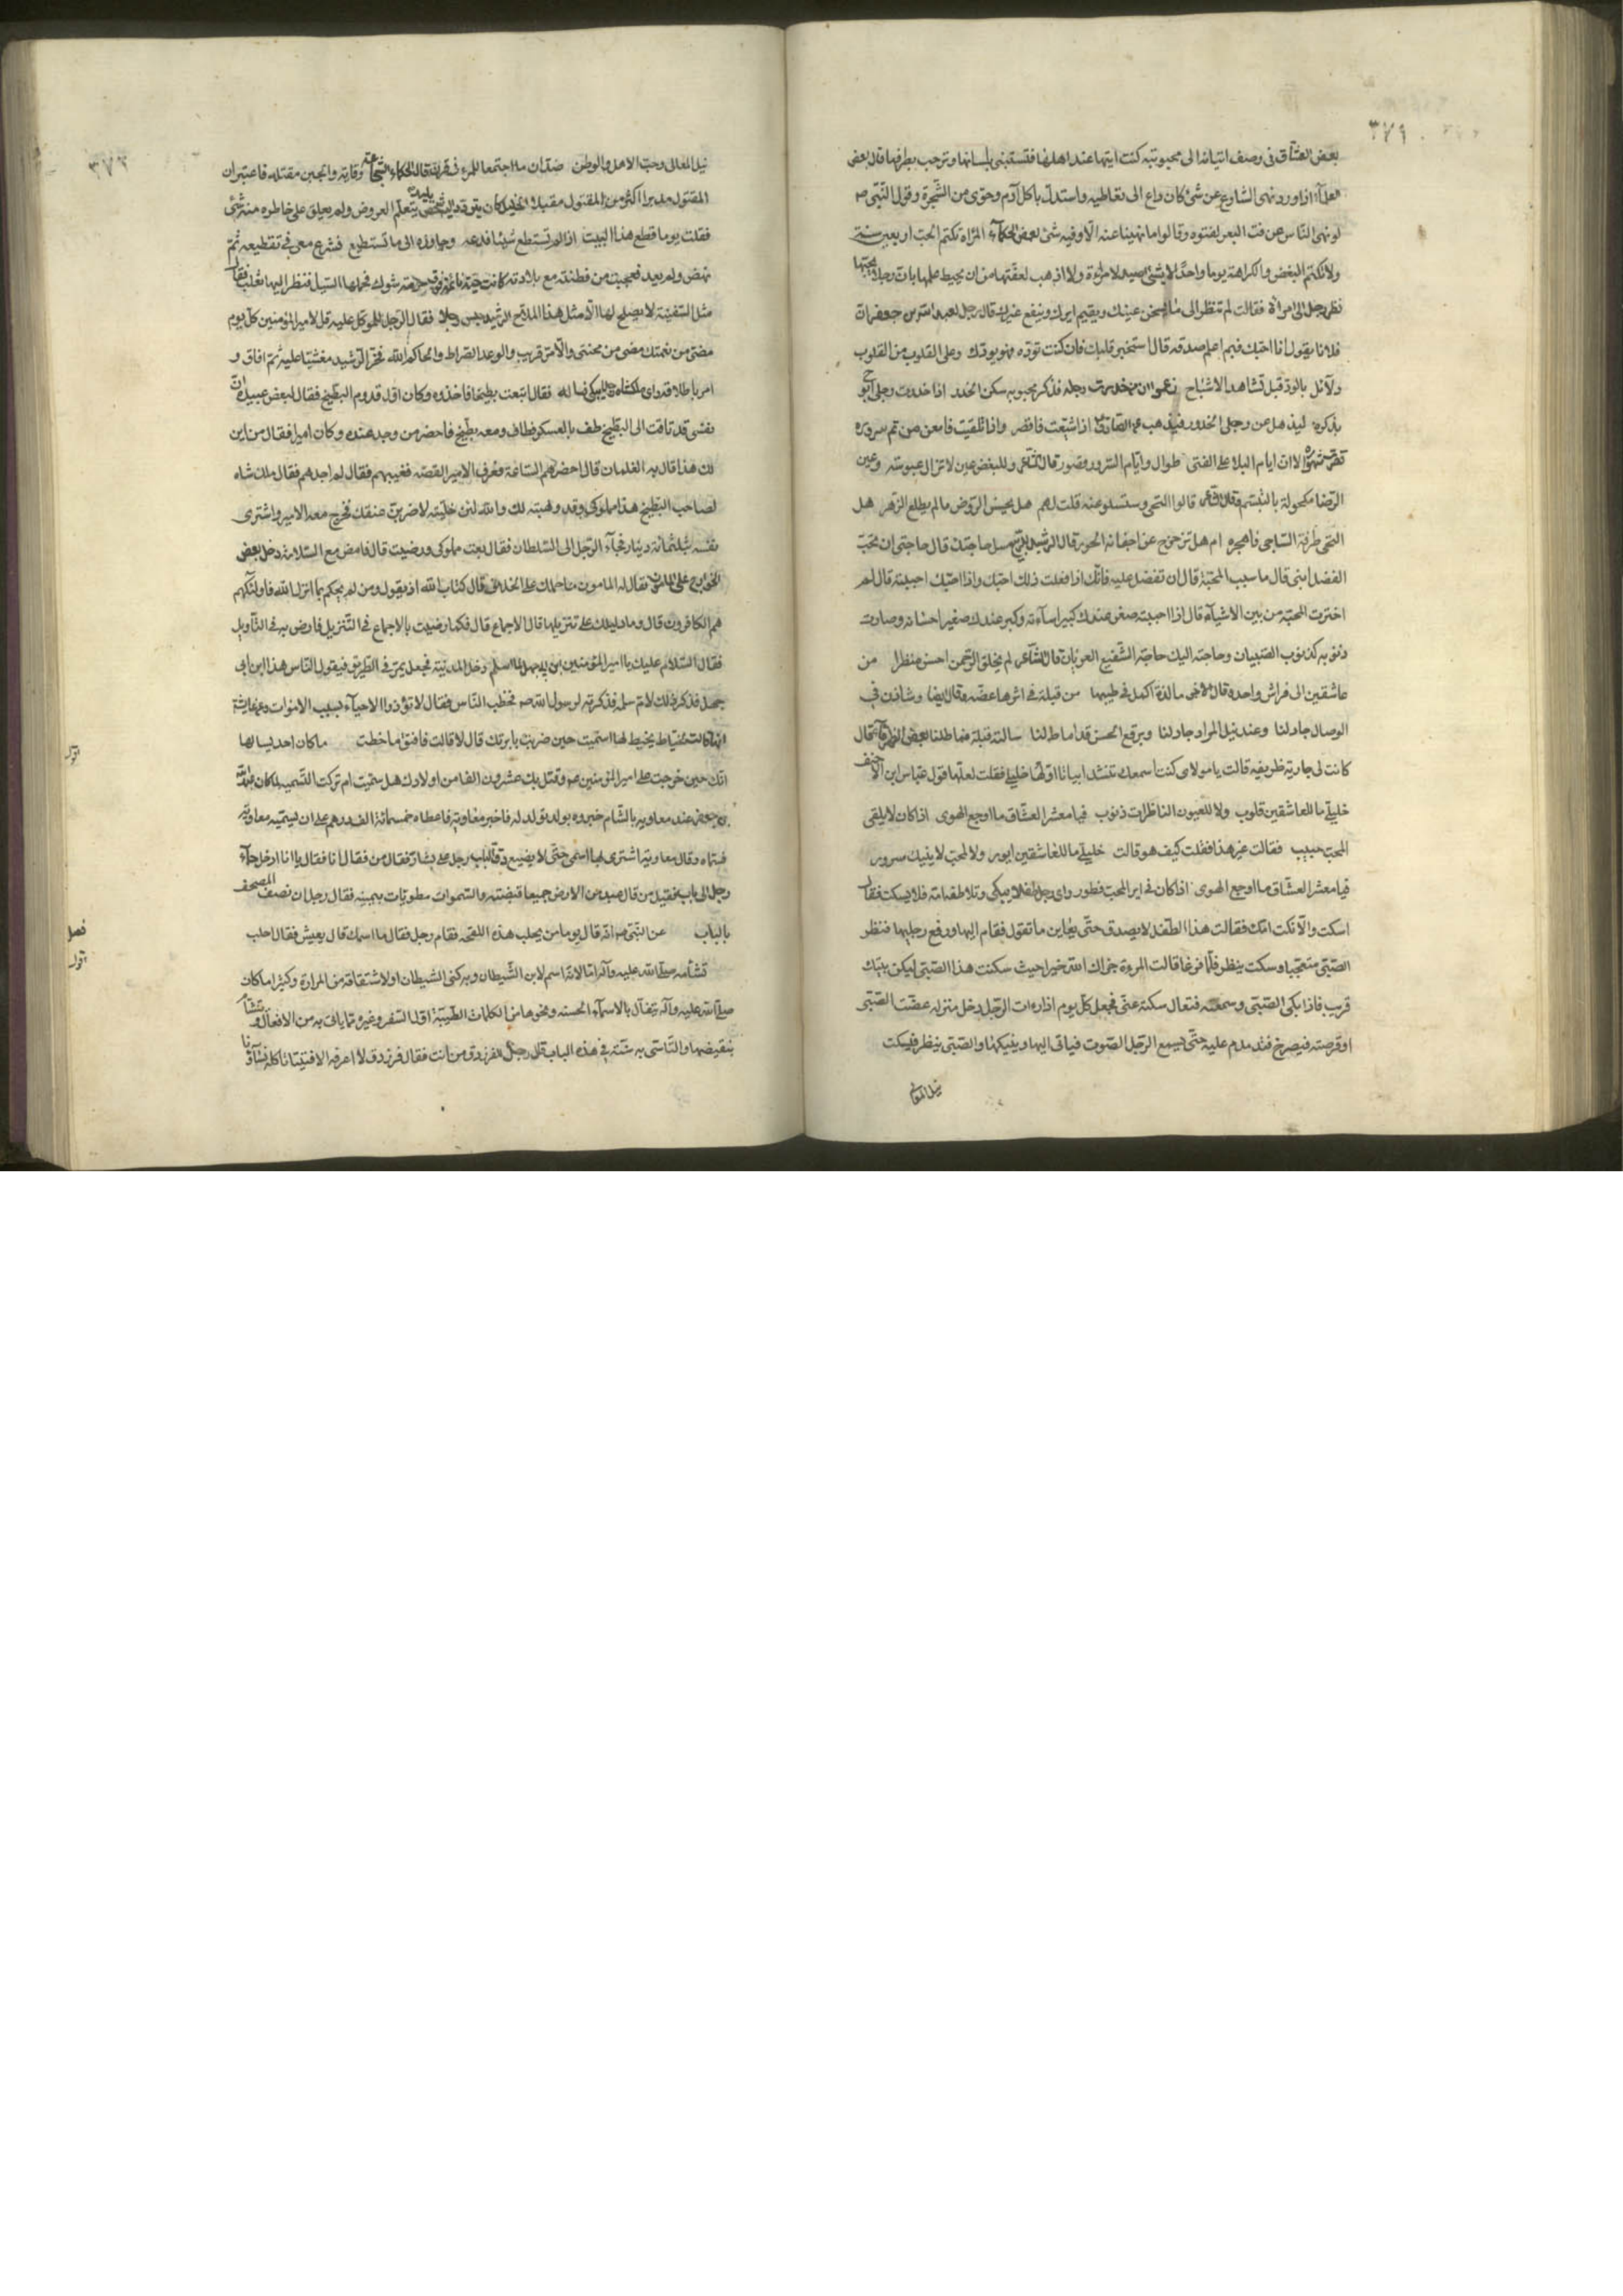 ٣٧١
بعض العشاق فى وصف اتيانه الى محبوبته كنت اتيتها عند اهلها فتستبنى بلسانها وترحب بطرفها قال بعض
اذا ورد نهى الشارع عن شئ كان داع الى تعاطيه واستدل باكل آدم وحوى من الشجرة وقول النبى صم
لو نهى الناس عن فت البعر لفتوه وقالوا ما نهينا عنه الا وفيه شئ لبعض الحكماء المراة تكتم الحب اربعين سنة
ولا تكتم البغض والكراهة يوما واحدا لا شئ اصيد لامراة ولا اذهب لعفتها من ان يحيط علمها بان رجلا يحبها
نظر رجل الى مراة فقالت لم تنظر الى ما يسخن عينك ويقيم ايرك وينفع غيرك قال رجل لعبد الله بن جعفر ان
فلانا يقول انا احبك فبم اعلم صدقه قال استخبر قلبك فان كنت توده فهو يودك وعلى القلوب من القلوب
دلائل بالود قبل تشاهد الاشباح زعموا ان من خدرت رجله فذكر محبوبه سكن الخدر اذا خدرت رجلى ابوح
بذكره ليذهل عن رجلى الخدور فيذهب
الا ان ايام البلاء على الفتى طوال وايام السرور قصور قال شاعر وللبغض عين لا تزال عبوسة وعين
الرضا مكحولة بالتبسم وقال شاعر قالوا التحى وستسلو عنه قلت لهم هل يحسن الروض ما لم يطلع الزهر هل
التحى طرفه الساجى فاهجره ام هل تزحزح عن اجفانه الحور قال الرشيد سل حاجتك قال حاجتى ان تحب
الفضل ابنى قال ما سبب المحبة قال ان تفضل عليه فانك اذا فعلت ذلك احبك واذا احبك احببته قال لم
اخترت المحبة من بين الاشياء قال اذا احببته صغر عندك كبير اساءته وكبر عندك صغير احسانه وصارت
ذنوبه كذنوب الصبيان وحاجته اليك حاجة الشفيع العريان قال الشاعر لم يخلق الرحمن احسن منظرا من
عاشقين الى فراش واحد وقال ما لذة اكمل فى طيبها من قبلة فى اثرها عضه وقال ايضا وشادن فى
الوصال جاد لنا وعند نيل المراد جاد لنا وبرقع الحسن قد اماط لنا سالته قبلة فماطلنا بعض الظرفاء قال
كانت لى جارية ظريفه قالت يا مولاى كنت اسمعك تنشد ابياتا اولها خليلى فقلت لعلها قول عباس ابن الاحنف
خليلى ما للعاشقين قلوب ولا للعيون الناظرات ذنوب فيا معشر العشاق ما اوجع الهوى اذا كان لا يلقى
المحب حبيب فقالت غير هذا فقلت كيف هو قالت خليلى ما للعاشقين ايور ولا لمحب لا ينيك سرور
فيا معشر العشاق ما اوجع الهوى اذا كان فى اير المحب فطور راى رجل طفلا يبكى وتلاطفه امه فلا يسكت فقال
اسكت والا نكت امك فقالت هذا الطفل لا يصدق حتى يعاين ما تقول فقام اليها ورفع رجليها فنظر
الصبى متعجبا وسكت ينظر فلما فرغا قالت المرءة جزاك الله خيرا حيث سكنت هذا الصبى ليكن بيتك
قريب فاذا بكى الصبى وسمعته فتعال سكته عنى فجعل كل يوم اذا رات الرجل دخل منزله عضت الصبى
او قرصته فيصرخ حتى يسمع الرجل الصوت فياتى اليها وينيكها والصبى ينظر فيسكت
نيل المعالى
٣٧٢
نيل المعالى وحب الاهل والوطن ضدان ما اجتمعا للمرء فى قرن قال الحكماء الشجاعة وقاية والجبن مقتلة فاعتبر ان
المقتول مدبرا اكثر من المقتول مقبلا الخليل كان يتردد اليه شخص بليد يتعلم العروض ولم يعلق على خاطره منه شئ
فقلت يوما قطع هذا البيت اذا لم تستطع شيئا فدعه وجاوزه الى ما تستطيع فشرع معى فى تقطيعه ثم
نهض ولم يعد فعجبت من فطنته مع بلادته كانت حية نائمة فوق حزمة شوك فحملها السيل فنظر اليها ثعلب فقال
مثل السفينة لا يصلح لها الا مثل هذا الملاح الرشيد حبس رجلا فقال الرجل للموكل عليه قل لامير المؤمنين كل يوم
مضى من نعمتك مضى من محنتى والامر قريب والوعد الصراط والحاكم الله فخر الرشيد مغشيا عليه ثم افاق و
امر باطلاقه راى ملكشاه يبكى فساله فقال ابتعت بطيخا فاخذوه وكان اول قدوم البطيخ فقال لبعض عبيده ان
نفسى قد تاقت الى البطيخ طف بالعسكر فطاف ومعه بطيخ فاحضر من وجد عنده وكان اميرا فقال من اين
لك هذا قال به الغلمان قال احضرهم الساعة وعرف الامير القصة فغيبهم فقال لم اجدهم فقال ملك شاه
لصاحب البطيخ هذا مملوكى وقد وهبته لك والله لئن خليته لاضربن عنقك فخرج معه الامير واشترى
نفسه بثلثمائة دينار فجاء الرجل الى السلطان فقال بعت مملوكى ورضيت قال فامض مع السلامة دخل بعض
الخوارج على المامون فقال له المامون ما حملك على الخلاف قال كتاب الله اذ يقول ومن لم يحكم بما انزل الله فاولئكهم
هم الكافرون قال وما دليلك على تنزيلها قال الاجماع قال فكما رضيت بالاجماع فى التنزيل فارض به فى التاويل
فقال السلام عليك يا امير المؤمنين ابن ابى جهل لما اسلم دخل المدينة فجعل يمر فى الطريق فيقول الناس هذا ابن ابى
جهل فذكر ذلك لام سلمه فذكرته لرسول الله صم فخطب الناس فقال لا تؤذوا الاحياء بسبب الاموات وعن عايشة
انها كانت يخيط لها اسميت حين ضربت بابرتك قال لا قالت فافتق ما خطت ما كان احد يسالها
انك حين خرجت على امير المؤمنين عم وقتل بك عشرون الفا من اولادك هل سميت ام تركت التسميه لما كان عبد الله
بن جعفر عند معاويه بالشام خبروه بولد تولد له فاخبر معاوية فاعطاه خمسمائة الف درهم على ان يسميه معاوية
فسماه وقال معاوية اشترى بها اسمى حتى لا يضيع دق الباب رجل على بشار فقال من فقال انا فقال يا انا ادخل جاء
رجل الى باب فقيل من قال والارض جميعا قبضته والسموات مطويات بيمينه فقال رجل ان نصف المصحف
بالباب عن النبى صم انه قال يوما من يحلب هذه اللقحه فقام رجل فقال ما اسمك قال يعيش فقال احلب
تشأمه صلى الله عليه وآله اما لانه اسم لابن الشيطان وبه كنى الشيطان او لاشتقاقه من المرارة وكثيرا ما كان
صلى الله عليه وآله يتفأل بالاسماء الحسنه ونحوها من الكلمات الطيبة اول السفر وغيره مما ياتى به من الافعال ويتشأم
بنقيضها والتاسى به سنة فى هذه الباب قال رجل للفرزدق من انت فقال فرزدق لا اعرفه
اقول
فصل
اقول